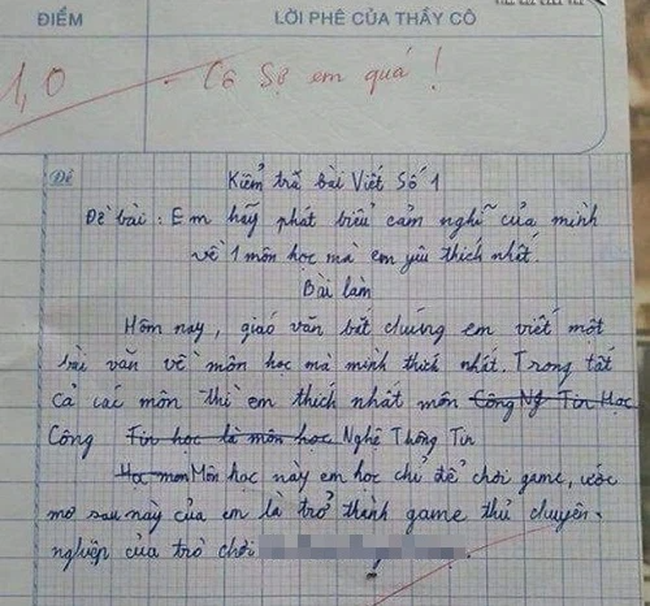 ĐIỂM
LỜI PHÊ CỦA THẦY CÔ
1,0
- Cô sợ em quá !
Đề
Kiểm trã Bài Viết Số 1
Đề bài : Em hãy phát biểu cảm nghĩ của mình
về 1 môn học mà em yêu thích nhất.
Bài làm
Hôm nay, giáo văn bắt chúng em viết một
bài văn về môn học mà mình thích nhất. Trong tất
cả các môn thì em thích nhất môn Công Ng Tin Học
Công Tin học là môn học Nghệ Thông Tin
Học mon Môn học này em học chỉ để chơi game, ước
mơ sau này của em là trở thành game thủ chuyên
nghiệp của trò chơi